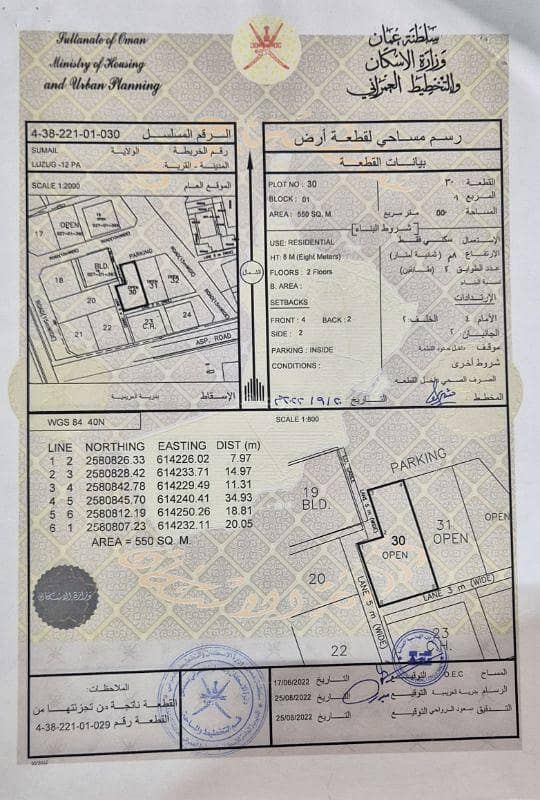 Sultanate of Oman
Ministry of Housing
and Urban Planning
سلطنة عمان
وزارة الإسكان
والتخطيط العمراني
4-38-221-01-030 الرقم المسلسل
SUMAIL رقم الخريطة الولاية
LUZUG -12 PA المدينة - القرية
SCALE 1:2000 الموقع العام
OPEN
PARKING
17
18
BLD.
19
20
OPEN
30
31
21
22
23
C.H.
24
ASP. ROAD
الإسقاط
الشمال
رسم مساحي لقطعة أرض
بيانات القطعة
PLOT NO : 30 القطعة : ٣٠
BLOCK : 01 المربع
AREA : 550 SQ. M. المساحة ٥٥٠ متر مربع
شروط البناء
USE: RESIDENTIAL الإستعمال سكني فقط
HT: 8 M (Eight Meters) الإرتفاع
FLOORS : 2 Floors عدد الطوابق ٢ (طابقين)
B. AREA : مساحة البناء
SETBACKS الإرتدادات
FRONT : 4 BACK : 2 الأمام ٤ الخلف ٢
SIDE : 2 الجانبان ٢
PARKING : INSIDE موقف داخل حدود القطعة
CONDITIONS : شروط أخرى
الصرف الصحي داخل القطعة
المخطط التاريخ
WGS 84 40N
SCALE 1:800
LINE NORTHING EASTING DIST (m)
1 2 2580826.33 614226.02 7.97
2 3 2580828.42 614233.71 14.97
3 4 2580842.78 614229.49 11.31
4 5 2580845.70 614240.41 34.93
5 6 2580812.19 614250.26 18.81
6 1 2580807.23 614232.11 20.05
AREA = 550 SQ. M.
PARKING
19
BLD.
LANE 5 m (WIDE)
30
OPEN
31
OPEN
OPEN
20
LANE 5 m (WIDE)
LANE 3 m (WIDE)
22
23
C.H.
وزارة الإسكان
الملاحظات:
القطعة ناتجة من تجزئتها من
القطعة رقم 4-38-221-01-029
المساح O.E.C التوقيع التاريخ 17/06/2022
الرسام بدرية العريمية التوقيع التاريخ 25/08/2022
التدقيق سعود الرواحي التوقيع التاريخ 25/08/2022